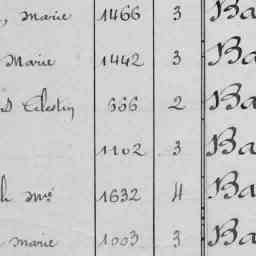 , Marie 1466 3 Ba
Marie 1442 3 Ba
D Celestin 666 2 Ba
1102 3 Ba
h Mie 1632 4 Ba
Marie 1003 3 Ba